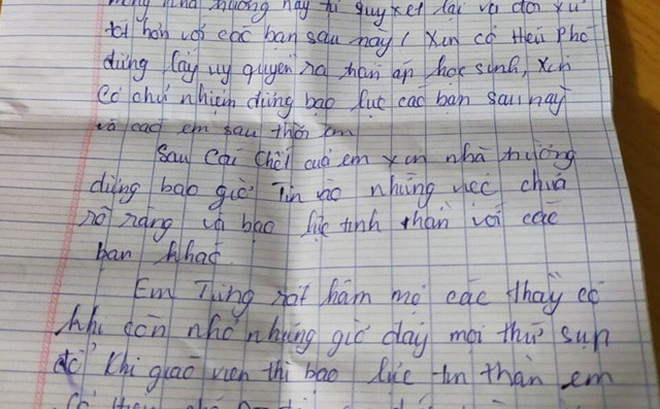 mong nhà trường hãy quy xét lại và đối xử
tốt hơn với các bạn sau này / Xin cô Hiệu Phó
đừng lấy uy quyền ra trấn áp học sinh, Xin
Cô chủ nhiệm đừng bạo lực các bạn sau này
và các em sau thời em
Sau Cái Chết của em xin nhà trường
đừng bao giờ Tin vào những việc chưa
rõ ràng và bạo lực tinh thần với các
bạn khác.
Em Từng rất hâm mộ các thầy cô
khi còn nhỏ nhưng giờ đây mọi thứ sụp
đổ Khi giáo viên thì bạo lực tin thần em